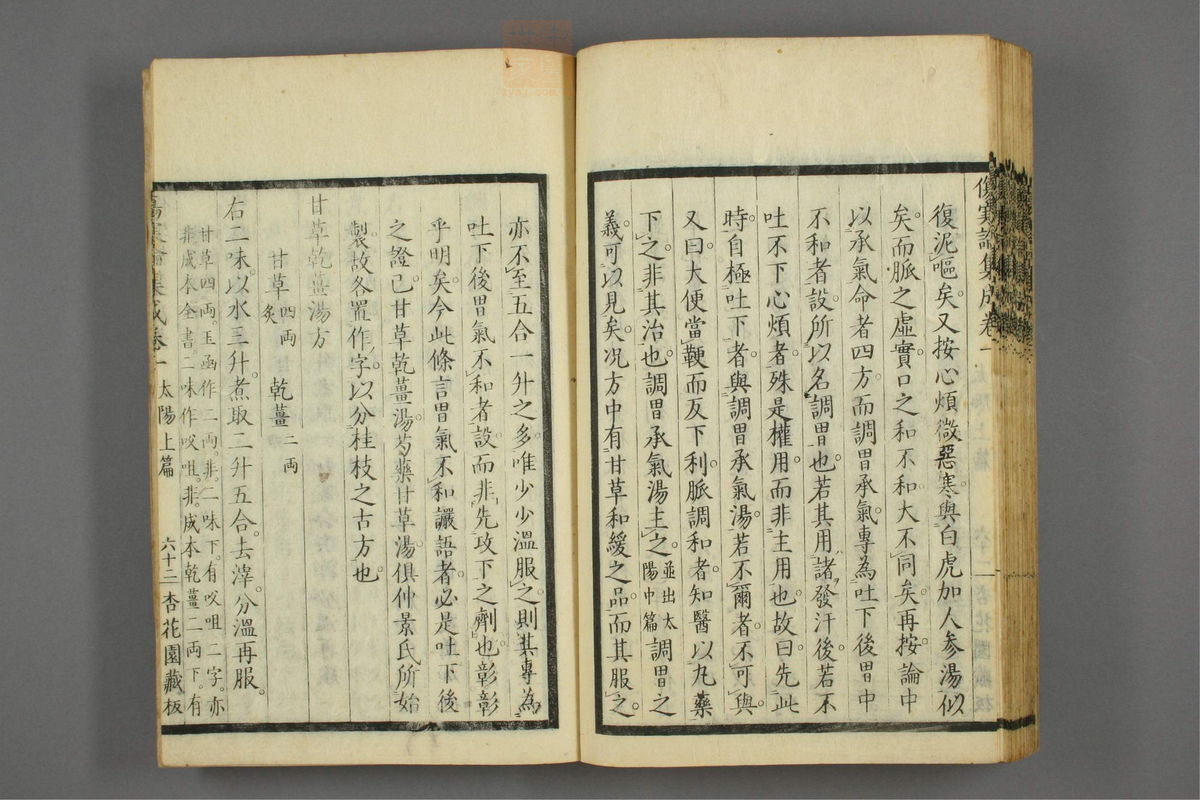 傷寒論集成卷一
復泥嘔矣。又按心煩微惡寒。與白虎加人參湯似
矣。而脈之虛實。口之和不和。大不同矣。再按。論中
以承氣命者四方。而調胃承氣。專為吐下後胃中
不和者設。所以名調胃也。若其用諸發汗後。若不
吐不下心煩者。殊是權用。而非主用也。故曰先此
時自極吐下者。與調胃承氣湯。若不爾者。不可與。
又曰。大便當鞕而反下利。脈調和者。知醫以丸藥
下之。非其治也。調胃承氣湯主之。並出太陽中篇調胃之
義。可以見矣。况方中有甘草和緩之品。而其服之。
亦不至五合一升之多。唯少少溫服之。則其專為
吐下後胃氣不和者設。而非先攻下之劑也。彰彰
乎明矣。今此條言胃氣不和讝語者。必是吐下後
之證已。甘草乾薑湯。芍藥甘草湯。俱仲景氏所始
製。故各置作字。以分桂枝之古方也。
甘草乾薑湯方
甘草四兩炙 乾薑二兩
右二味。以水三升。煮取二升五合。去滓。分溫再服。
甘草四兩。玉函作二兩。非。二味下。有㕮咀二字。亦
非。成本全書。二味作㕮咀。非。成本乾薑二兩下。有
傷寒論集成卷一 太陽上篇 六十二 杏花園藏板